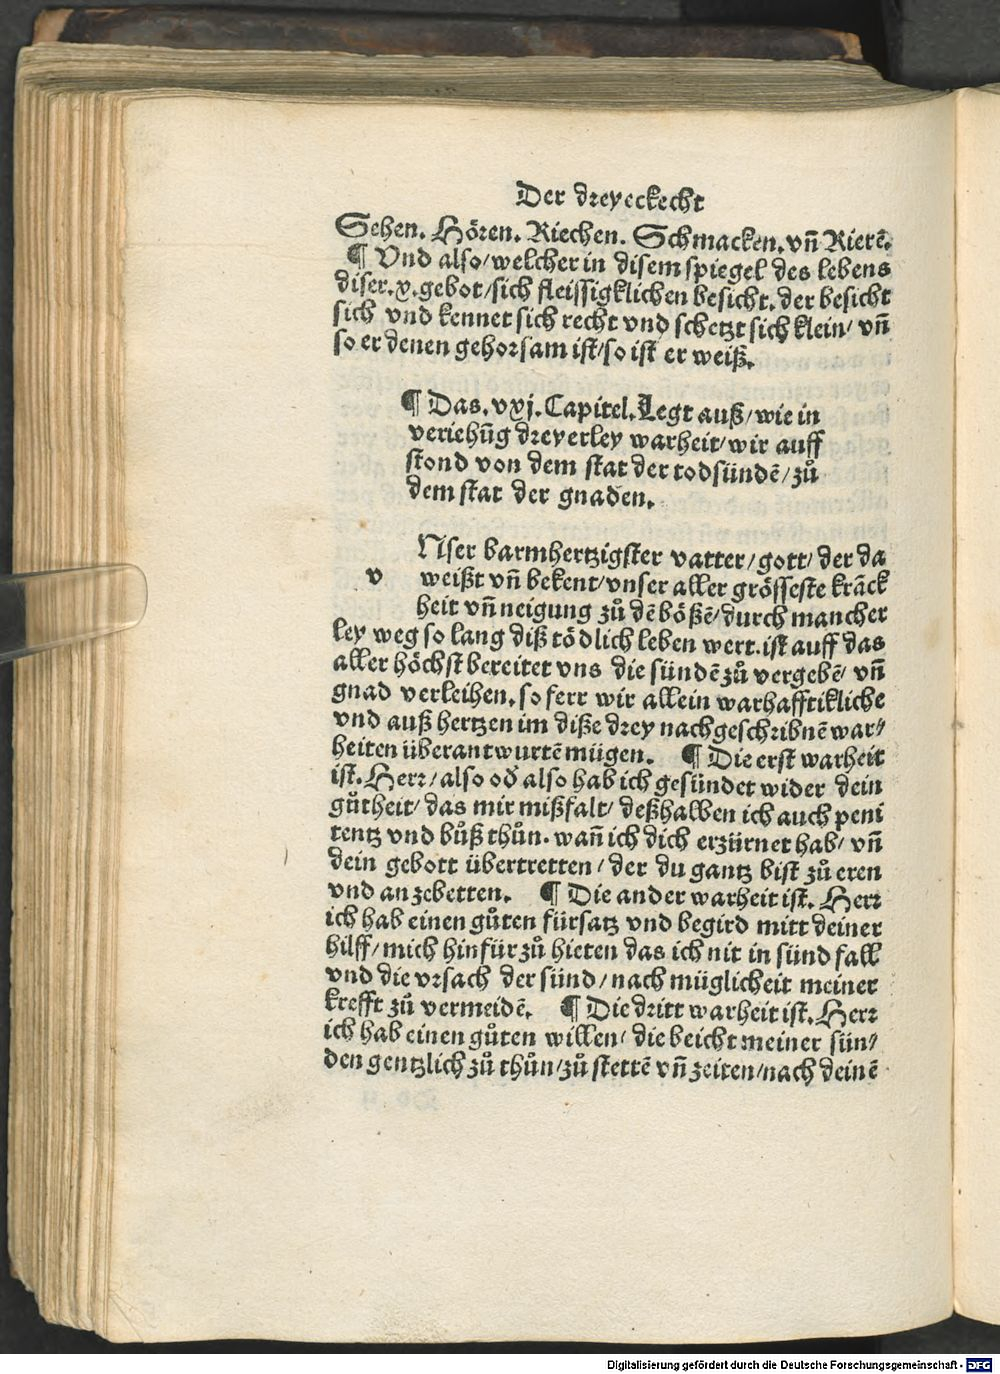 Der dreyeckecht
Sehen. Hören. Riechen. Schmacken. vn̄ Rierē.
¶ Vnd also/ welcher in disem spiegel des lebens
diser .x. gebot/ sich fleissigklichen besicht. der besicht
sich vnd kennet sich recht vnd schetzt sich klein/ vn̄
so er denen gehorsam ist/ so ist er weiß.
¶ Das .xxj. Capitel. Legt auß/ wie in
veriehūg dreyerley warheit/ wir auff
stond von dem stat der todsündē/ zů
dem stat der gnaden.
Nser barmhertzigster vatter/ gott/ der da
v weißt vn̄ bekent/ vnser aller grösseste krāck
heit vn̄ neigung zů dē bößē/ durch mancher
ley weg so lang diß tödlich leben wert. ist auff das
aller höchst bereitet vns die sündē zů vergebē/ vn̄
gnad verleihen. so ferr wir allein warhafftikliche
vnd auß hertzen im diße drey nachgeschribnē war/
heiten überantwurtē mügen. ¶ Die erst warheit
ist. Herr/ also od̄ also hab ich gesündet wider dein
gůtheit/ das mir mißfalt/ deßhalben ich auch peni
tentz vnd bůß thůn. wan̄ ich dich erzürnet hab/ vn̄
dein gebott übertretten/ der du gantz bist zů eren
vnd an zebetten. ¶ Die ander warheit ist. Herr
ich hab einen gůten fürsatz vnd begird mitt deiner
hilff/ mich hinfür zů hieten das ich nit in sünd fall
vnd die vrsach der sünd/ nach müglicheit meiner
krefft zů vermeidē. ¶ Die dritt warheit ist. Herr
ich hab einen gůten willen/ die beicht meiner sün/
den gentzlich zů thůn/ zů stettē vn̄ zeiten/ nach deinē
Digitalisierung gefördert durch die Deutsche Forschungsgemeinschaft - DFG